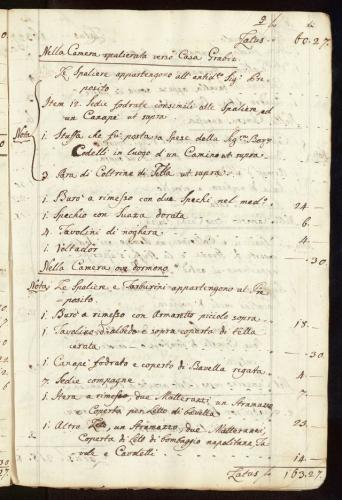 2 L
Latus 60.27.
Nella Camera spalierata verso Casa Grabiz
Le Spaliere appartengono all'antid.º Sig.r Pre-
posito
Item 12. Sedie fodrate consimili alle Spaliere, ed
un Canapè ut supra
Nota
1. Staffa che fu posta a Spese della Sig.ra Bar.
Codelli in luogo d'un Camino ut supra
3 Para di Coltrine di Tella ut supra
1. Burò a rimesso con due Spechi nel med.º 24 —
1. Spechio con Suaza dorata 6 —
4. Tavolini di noghera 4 —
1. Voltador — .30
Nella Camera ove dormono
Nota Le Spaliere e appartengono al Pre-
posito
1. Burò a rimesso con Armaretto picolo sopra 18 —
1. Tavolino d'albedo e sopra coperta di tella
cerata — .30
1. Canapè fodrato e coperto di Bavella rigata 4 —
7. Sedie compagne 7 —
1. a rimesso, due Matterazzi, un Stramazzo
Coperta per Letto di bavella 23 —
1. Altro Leto, un Stramazzo, due Matterazzi,
Coperta di Leto di bombaggio napolitane, Ta-
vole e Cavaletti 14 —
Latus L 163.27.